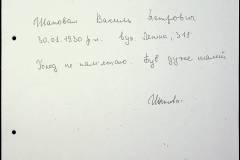 Шаповал Василь Петрович
30.01.1930 р.н. вул. Леніна, 318
Голод не пам'ятаю. Був дуже малий